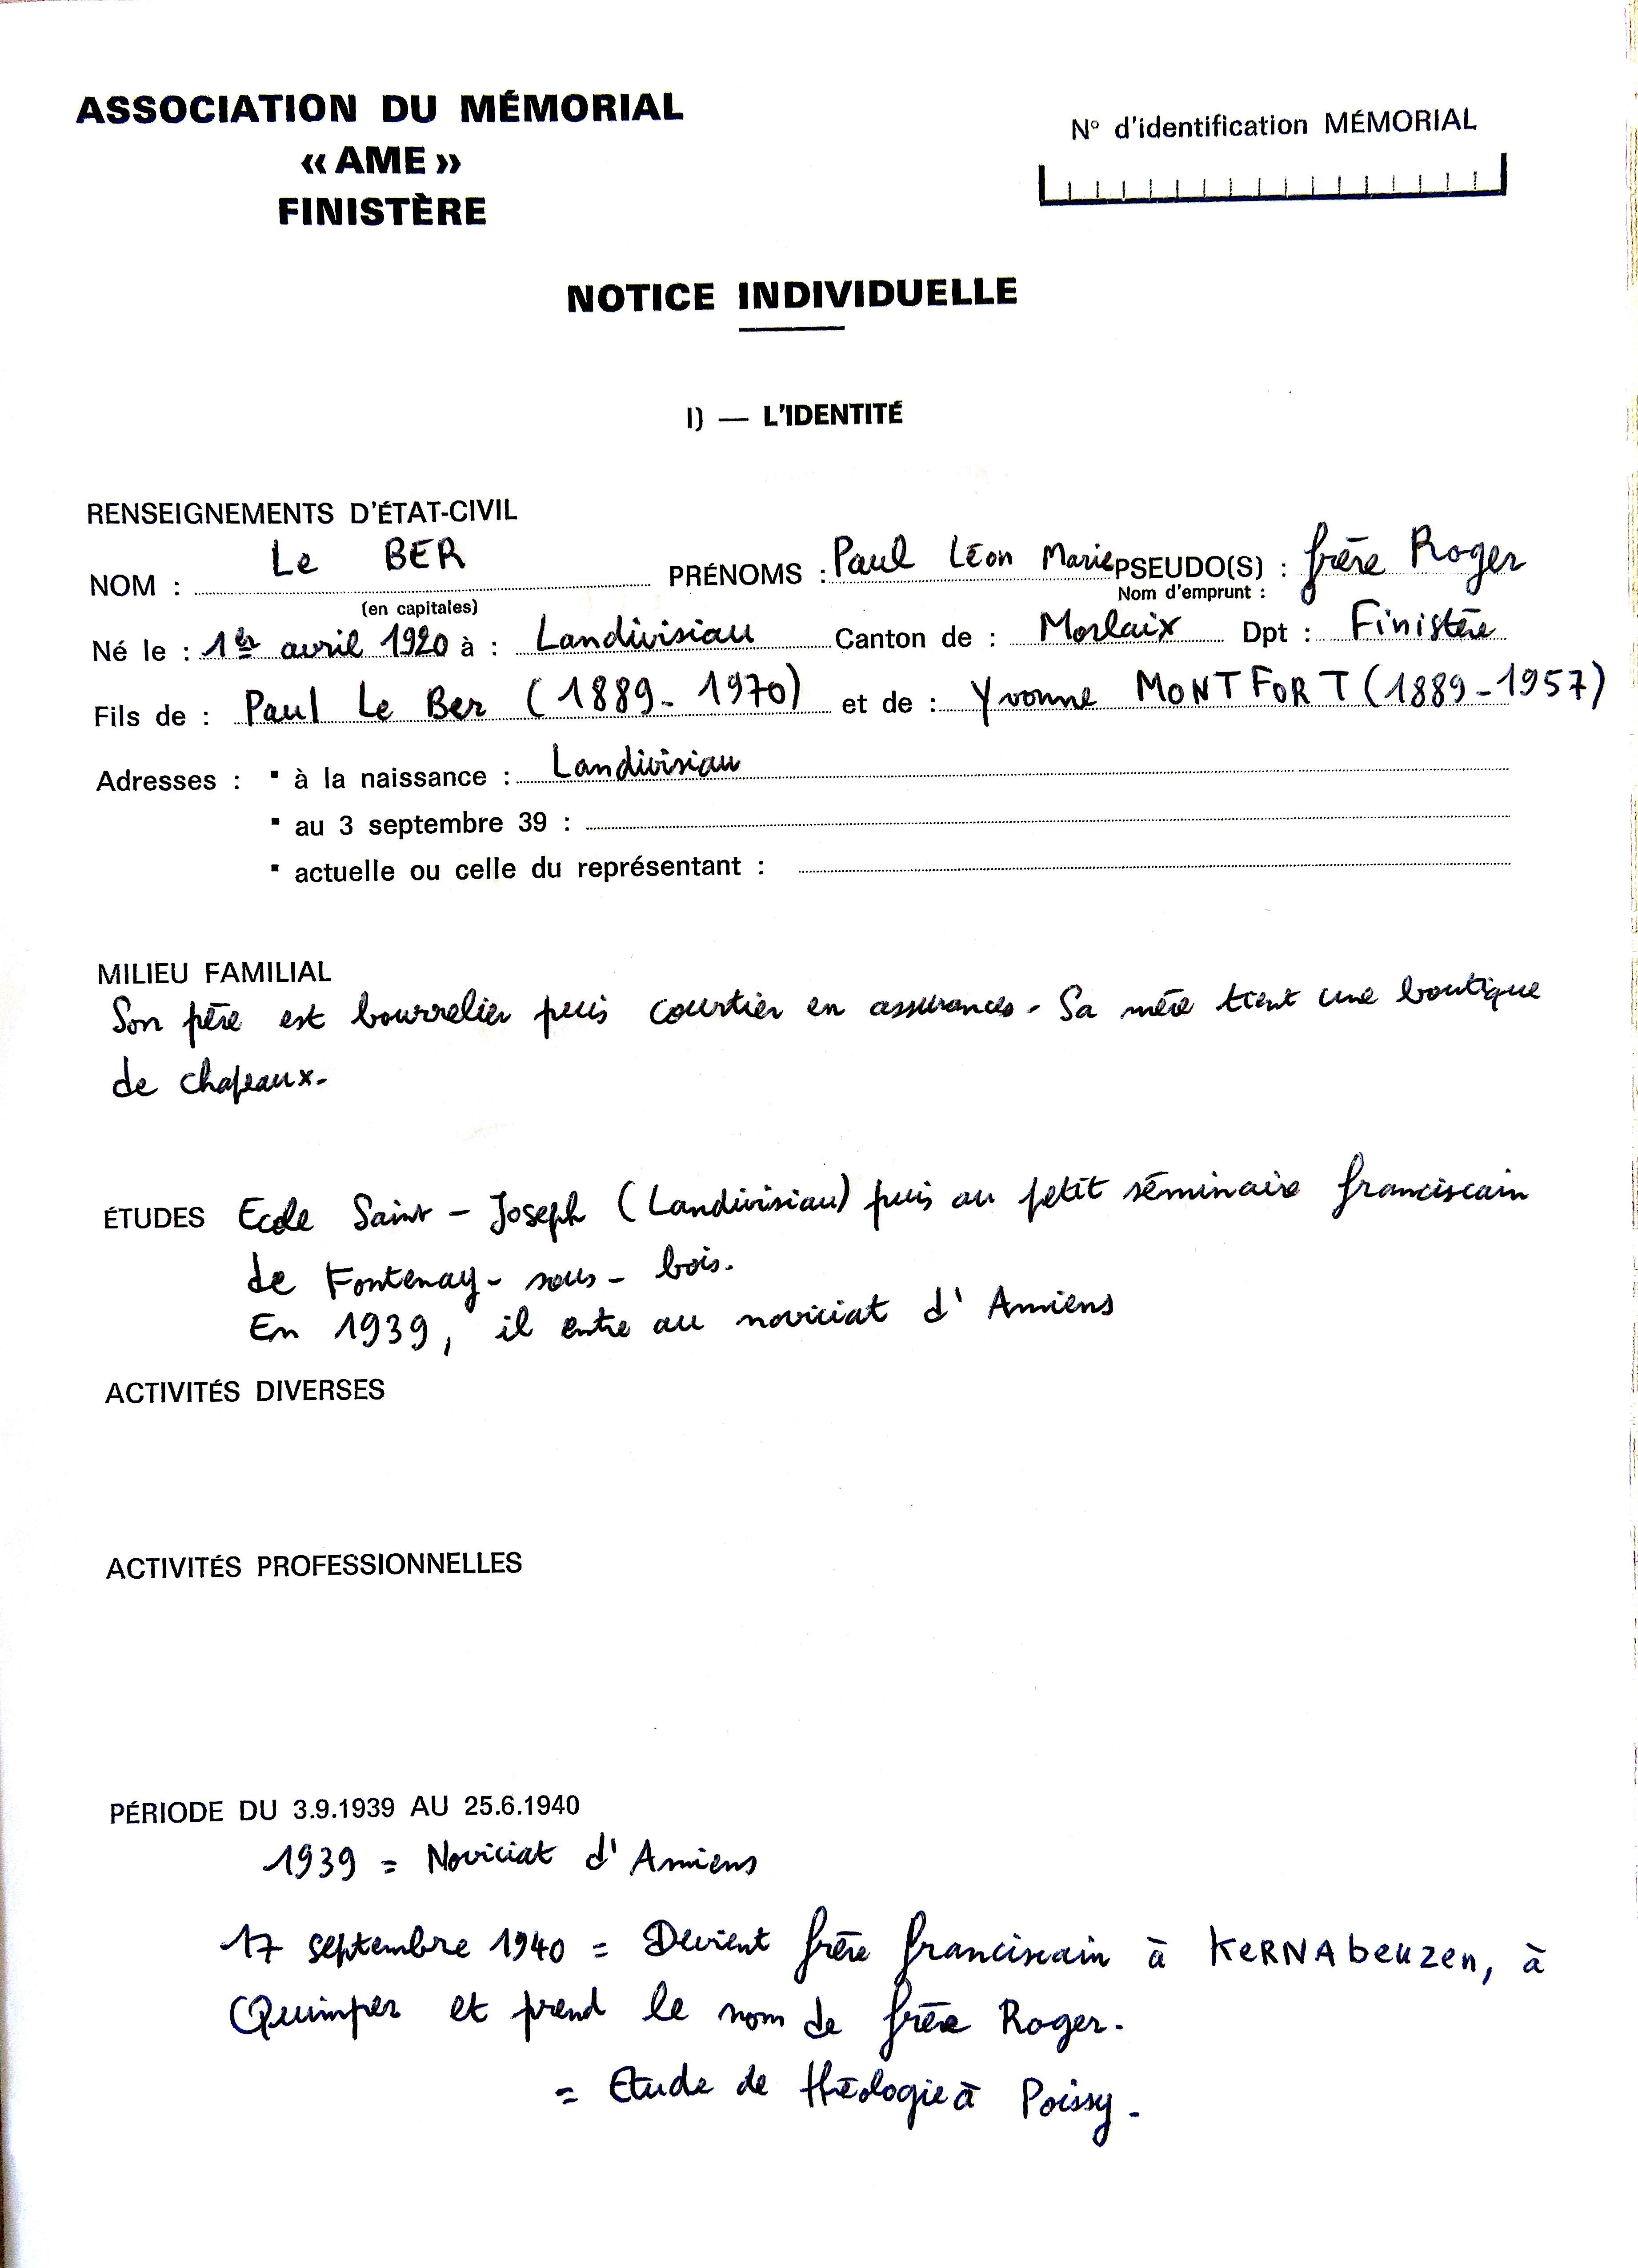 ASSOCIATION DU MÉMORIAL
« AME »
FINISTÈRE
N° d'identification MÉMORIAL
NOTICE INDIVIDUELLE
I) — L'IDENTITÉ
RENSEIGNEMENTS D'ÉTAT-CIVIL
NOM : Le BER PRÉNOMS : Paul Léon Marie PSEUDO(S) : frère Roger
(en capitales) Nom d'emprunt :
Né le : 1er avril 1920 à : Landivisiau Canton de : Morlaix Dpt : Finistère
Fils de : Paul Le Ber (1889-1970) et de : Yvonne MONTFORT (1889-1957)
Adresses : ▪ à la naissance : Landivisiau
▪ au 3 septembre 39 :
▪ actuelle ou celle du représentant :
MILIEU FAMILIAL
Son père est bourrelier puis courtier en assurances. Sa mère tient une boutique
de chapeaux.
ÉTUDES Ecole Saint-Joseph (Landivisiau) puis au petit séminaire franciscain
de Fontenay-sous-bois.
En 1939, il entre au noviciat d'Amiens
ACTIVITÉS DIVERSES
ACTIVITÉS PROFESSIONNELLES
PÉRIODE DU 3.9.1939 AU 25.6.1940
1939 = Noviciat d'Amiens
17 septembre 1940 = Devient frère franciscain à KERNAbeuzen, à
Quimper et prend le nom de frère Roger.
= Etude de théologie à Poissy.